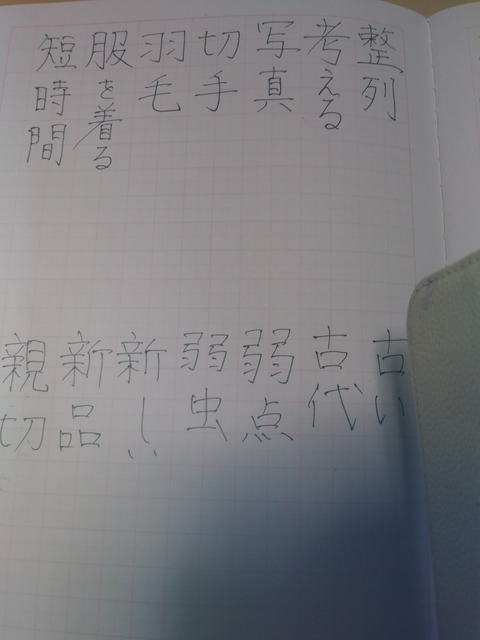 整列
考える
写真
切手
羽毛
服を着る
短時間
古い
古代
弱点
弱虫
新しい
新品
親切